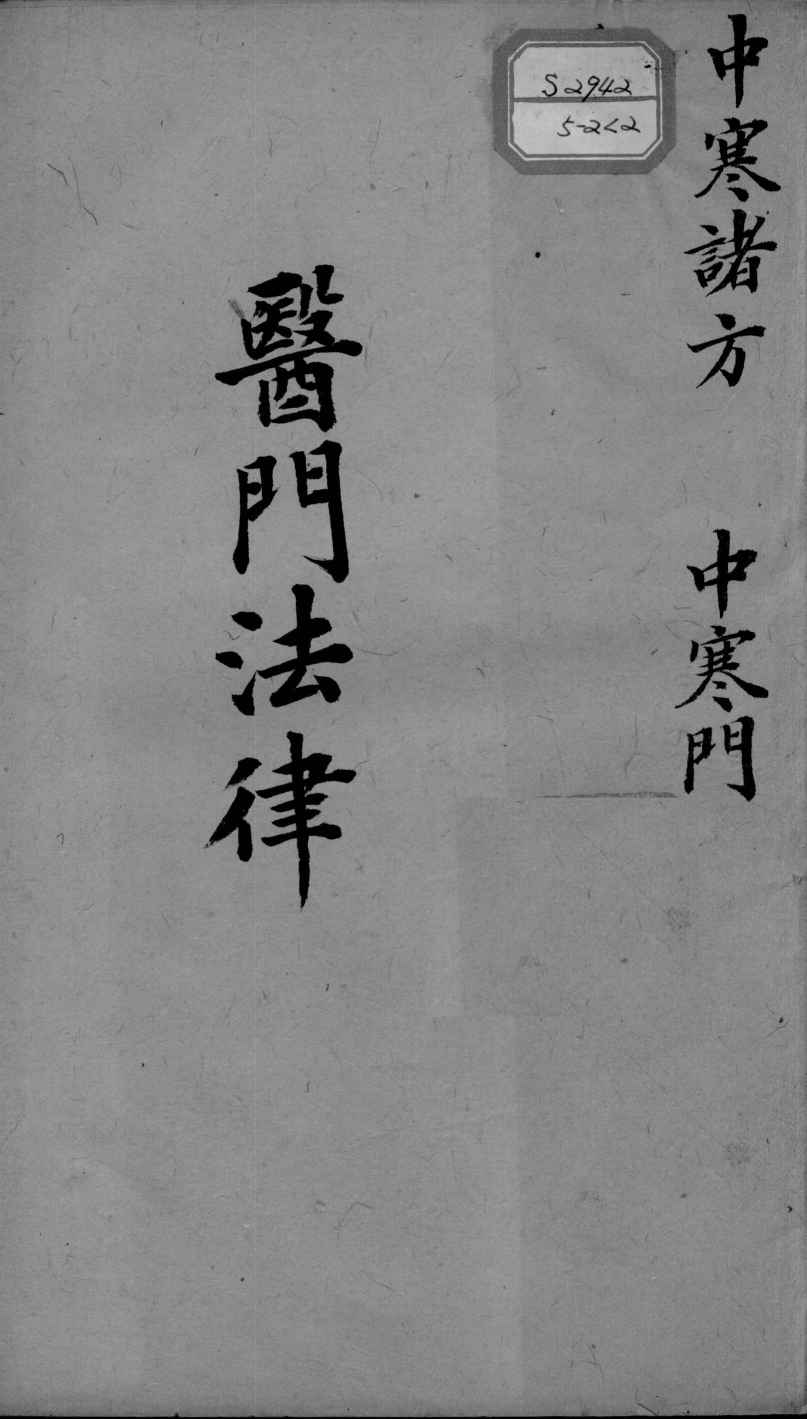 中寒諸方 中寒門
S2942
5-2<2
醫門法律